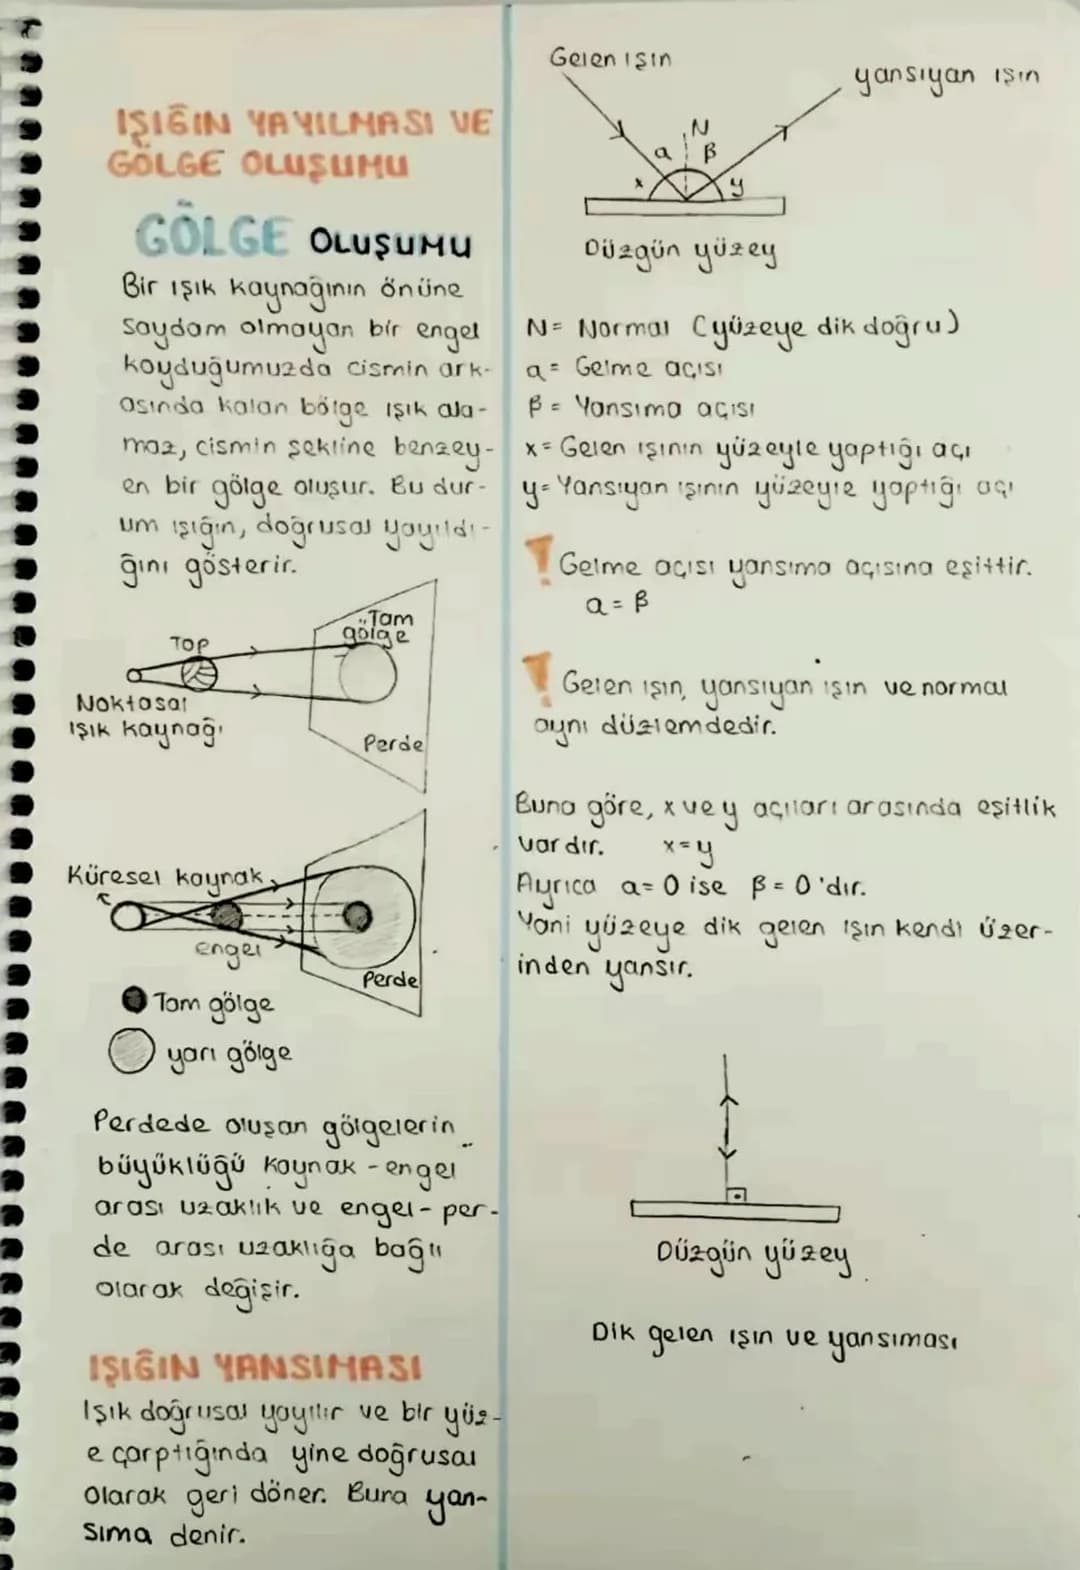 IŞIĞIN YAYILMASI VE
GÖLGE OLUŞUMU
GÖLGE OLUŞUMU
Bir ışık kaynağının önüne
saydam olmayan bir engel
koyduğumuzda cismin ark-
asında kalan bölge ışık ala-
maz, cismin şekline benzey-
en bir gölge oluşur. Bu dur-
um ışığın, doğrusal yayıldı-
ğını gösterir.
Top
Tam
gölge
Noktasal
ışık kaynağı
Perde
Küresel kaynak
engel
Perde
Tam gölge
yarı gölge
Perdede oluşan gölgelerin
büyüklüğü kaynak - engel
arası uzaklık ve engel - per-
de arası uzaklığa bağlı
olarak değişir.
IŞIĞIN YANSIMASI
Işık doğrusal yayılır ve bir yüz-
e çarptığında yine doğrusal
olarak geri döner. Buna yan-
sıma denir.
Gelen ışın
yansıyan ışın
N
a β
x y
Düzgün yüzey
N= Normal (yüzeye dik doğru)
a= Gelme açısı
β= Yansıma açısı
x= Gelen ışının yüzeyle yaptığı açı
y= Yansıyan ışının yüzeyle yaptığı açı
! Gelme açısı yansıma açısına eşittir.
a = β
! Gelen ışın, yansıyan ışın ve normal
aynı düzlemdedir.
Buna göre, x ve y açıları arasında eşitlik
vardır. x=y
Ayrıca a= 0 ise β= 0'dır.
Yani yüzeye dik gelen ışın kendi üzer-
inden yansır.
Düzgün yüzey
Dik gelen ışın ve yansıması